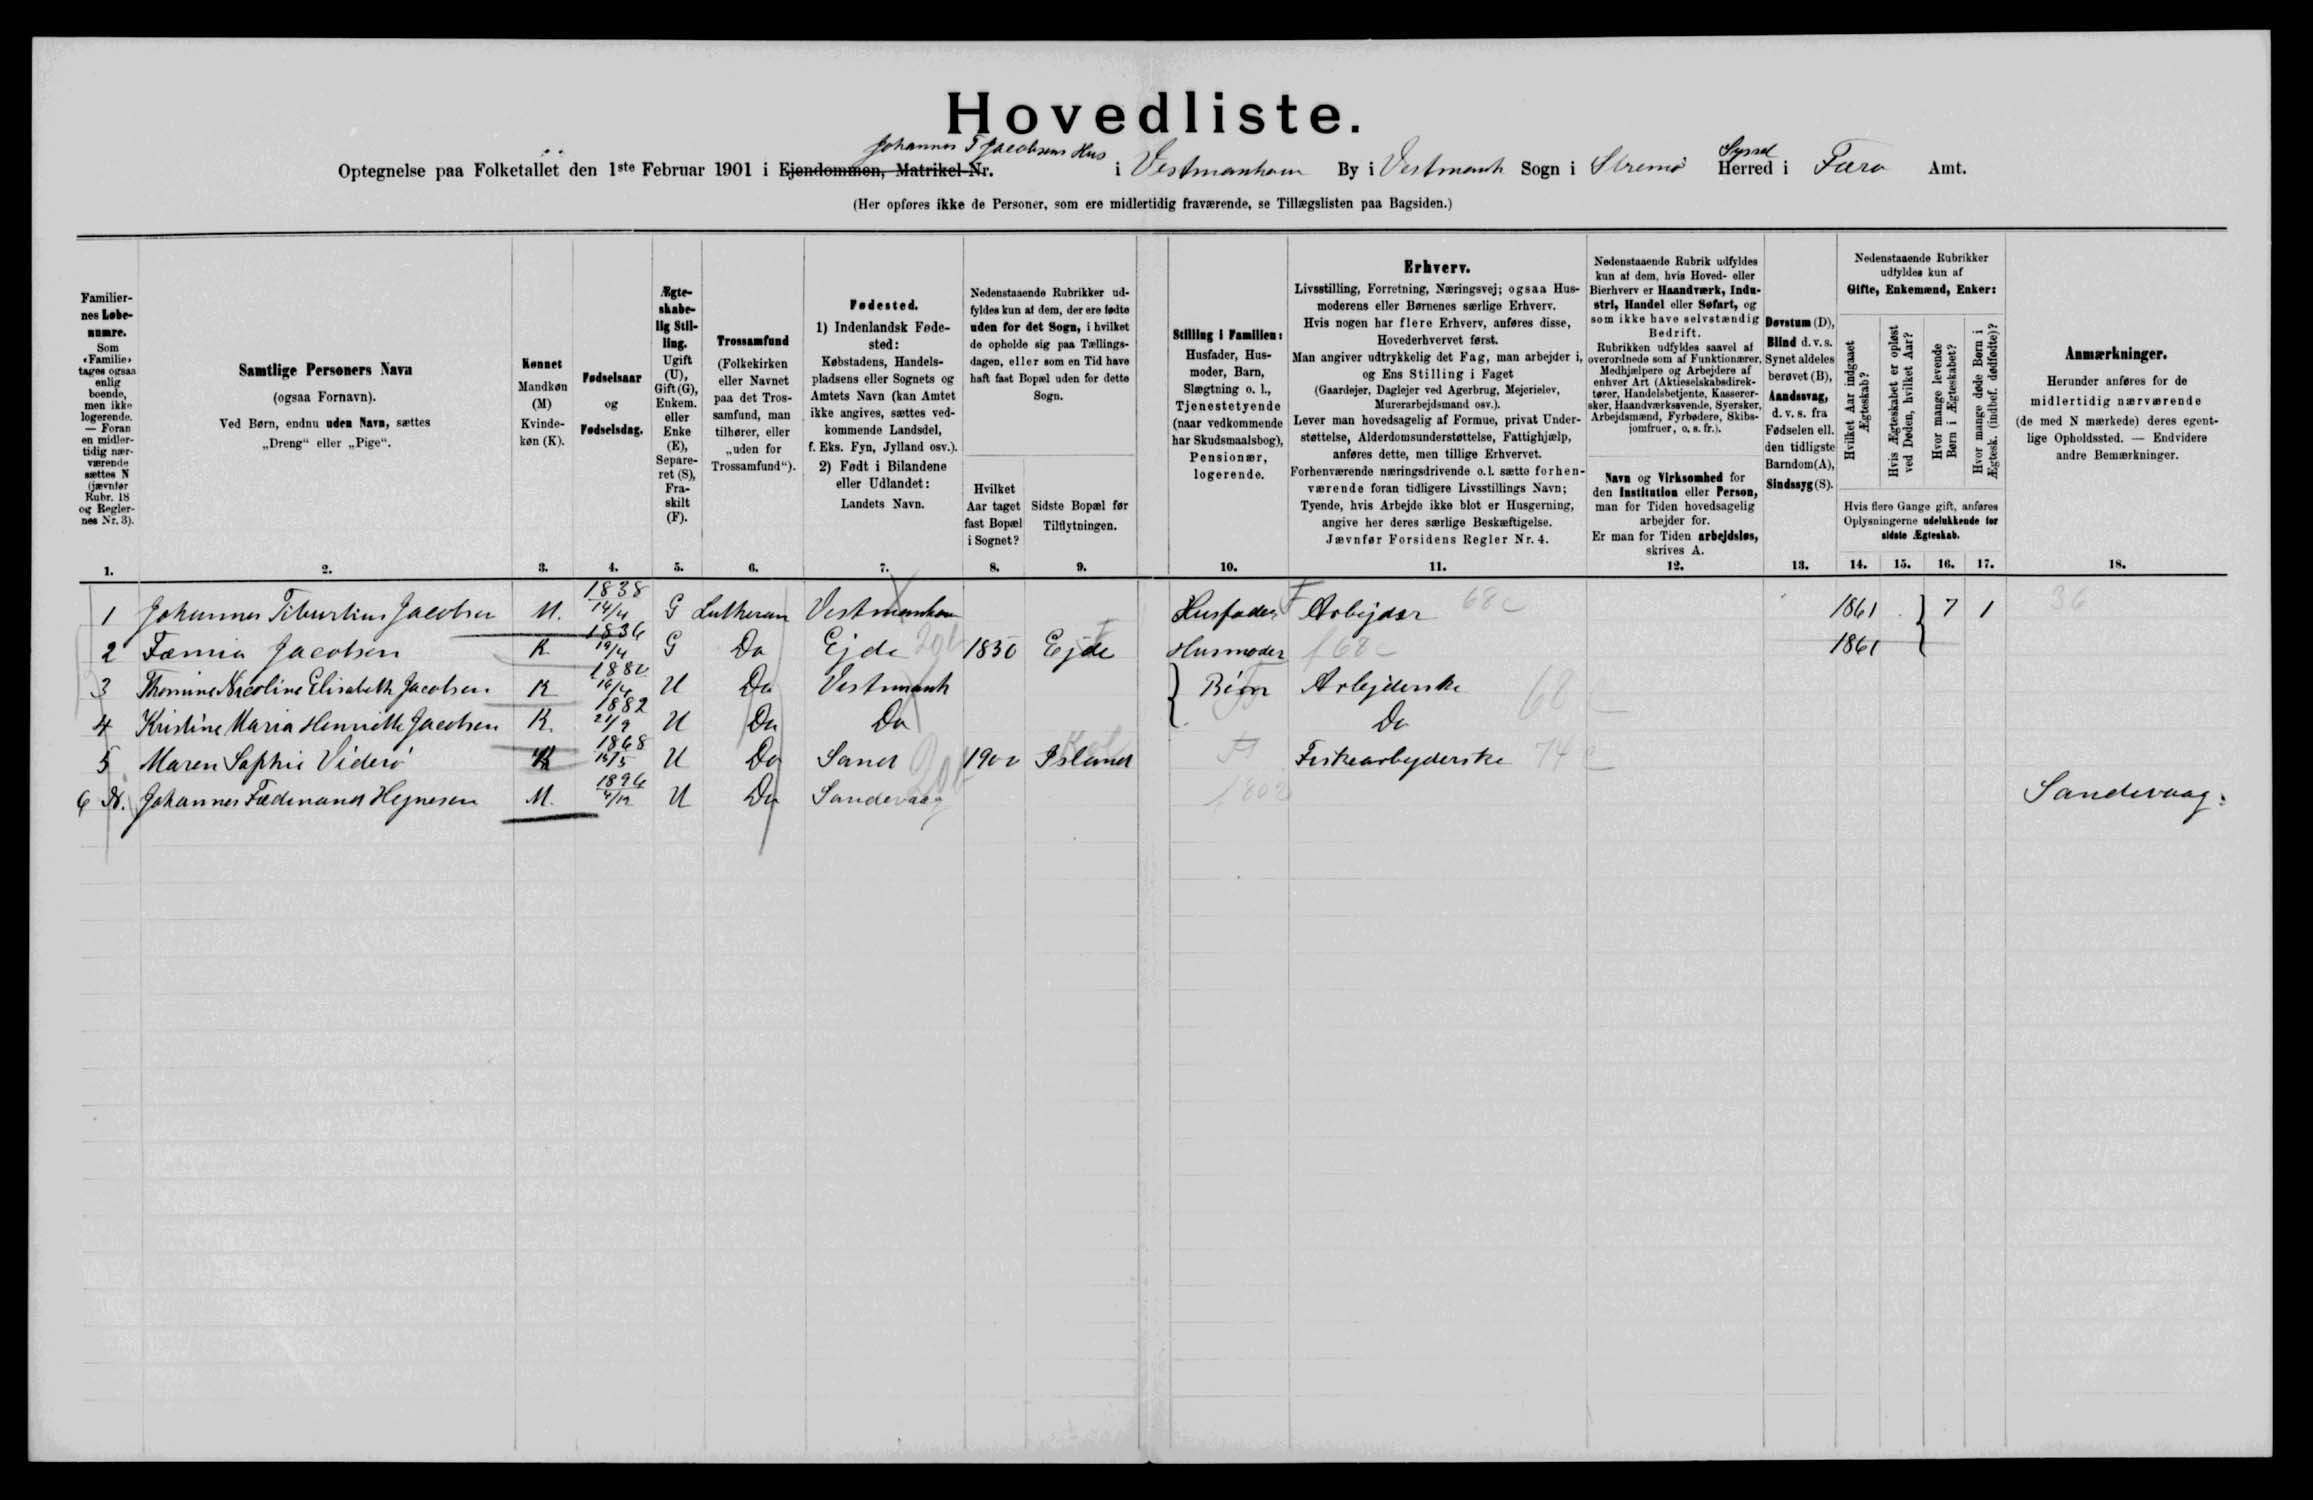 Hovedliste.
Johannes T Jacobsens Hus
Optegnelse paa Folketallet den 1ste Februar 1901 i Ejendommen, Matrikel-Nr. i Vestmanhavn By i Vestmanh Sogn i Strømø Syssel Herred i Færø Amt.
(Her opføres ikke de Personer, som ere midlertidig fraværende, se Tillægslisten paa Bagsiden.)
Familiernes Løbenumre. Som «Familie» tages ogsaa enlig boende, men ikke logerende. — Foran en midlertidig nærværende sættes N (jævnfør Rubr. 18 og Reglernes Nr. 3).
Samtlige Personers Navn (ogsaa Fornavn). Ved Børn, endnu uden Navn, sættes „Dreng“ eller „Pige“.
Kønnet Mandkøn (M) Kvindekøn (K).
Fødselsaar og Fødselsdag.
Ægteskabelig Stilling. Ugift (U), Gift (G), Enkem. eller Enke (E), Separeret (S), Fraskilt (F).
Trossamfund (Folkekirken eller Navnet paa det Trossamfund, man tilhører, eller „uden for Trossamfund“).
Fødested. 1) Indenlandsk Fødested: Købstadens, Handelspladsens eller Sognets og Amtets Navn (kan Amtet ikke angives, sættes vedkommende Landsdel, f. Eks. Fyn, Jylland osv.). 2) Født i Bilandene eller Udlandet: Landets Navn.
Nedenstaaende Rubrikker udfyldes kun af dem, der ere fødte uden for det Sogn, i hvilket de opholde sig paa Tællingsdagen, eller som en Tid have haft fast Bopæl uden for dette Sogn.
Hvilket Aar taget fast Bopæl i Sognet?
Sidste Bopæl før Tilflytningen.
Stilling i Familien: Husfader, Husmoder, Barn, Slægtning o. l., Tjenestetyende (naar vedkommende har Skudsmaalsbog), Pensionær, logerende.
Erhverv.
Livsstilling, Forretning, Næringsvej; ogsaa Husmoderens eller Børnenes særlige Erhverv.
Hvis nogen har flere Erhverv, anføres disse, Hovederhvervet først.
Man angiver udtrykkelig det Fag, man arbejder i, og Ens Stilling i Faget
(Gaardejer, Daglejer ved Agerbrug, Mejerielev, Murerarbejdsmand osv.).
Lever man hovedsagelig af Formue, privat Understøttelse, Alderdomsunderstøttelse, Fattighjælp, anføres dette, men tillige Erhvervet.
Forhenværende næringsdrivende o.l. sætte forhenværende foran tidligere Livsstillings Navn;
Tyende, hvis Arbejde ikke blot er Husgerning, angive her deres særlige Beskæftigelse.
Jævnfør Forsidens Regler Nr. 4.
Nedenstaaende Rubrik udfyldes kun af dem, hvis Hoved- eller Bierhverv er Haandværk, Industri, Handel eller Søfart, og som ikke have selvstændig Bedrift.
Rubrikken udfyldes saavel af overordnede som af Funktionærer, Medhjælpere og Arbejdere af enhver Art (Aktieselskabsdirektører, Handelsbetjente, Kasserersker, Haandværkssvende, Syersker, Arbejdsmænd, Fyrbødere, Skibsjomfruer, o. s. fr.).
Navn og Virksomhed for den Institution eller Person, man for Tiden hovedsagelig arbejder for.
Er man for Tiden arbejdsløs, skrives A.
Døvstum (D), Blind d. v. s. Synet aldeles berøvet (B), Aandssvag, d. v. s. fra Fødselen ell. den tidligste Barndom (A), Sindssyg (S).
Nedenstaaende Rubrikker udfyldes kun af Gifte, Enkemænd, Enker:
Hvilket Aar indgaaet Ægteskab?
Hvis Ægteskabet er opløst ved Døden, hvilket Aar?
Hvor mange levende Børn i Ægteskabet?
Hvor mange døde Børn i Ægtesk. (indbef. dødfødte)?
Hvis flere Gange gift, anføres Oplysningerne udelukkende for sidste Ægteskab.
Anmærkninger.
Herunder anføres for de midlertidig nærværende (de med N mærkede) deres egentlige Opholdssted. — Endvidere andre Bemærkninger.
1. 2. 3. 4. 5. 6. 7. 8. 9. 10. 11. 12. 13. 14. 15. 16. 17. 18.
1 Johannes Tiburtius Jacobsen M. 1838 14/4 G Lutheran Vestmanhavn Husfader Arbejder 68c 1861 7 1 36
2 Fæmia Jacobsen K 1836 19/4 G Do Ejde 1830 Ejde Husmoder 68c 1861
3 Thomine Nicoline Elisabeth Jacobsen K 1880 16/4 U Do Vestmanh Börn Arbejderske
4 Kristine Maria Henriette Jacobsen K. 1882 21/9 U Do Do Do 68
5 Maren Sophie Viderö K 1868 U Do Sand 1900 Island Fiskearbejderske 74c
6 N. Johannes Fædinand Hejnesen M. 1896 U Do Sandevaag Sandevaag.